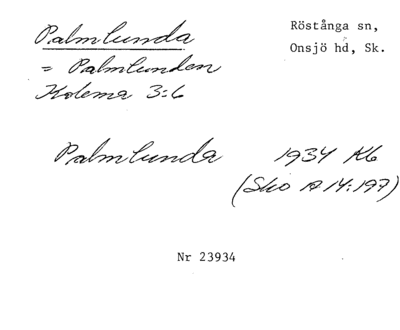 Palmlunda
= Palmlunden
Kolema 3:6
Röstånga sn,
Onsjö hd, Sk.
Palmlunda 1934 Kb
(Sko 14:197)
Nr 23934